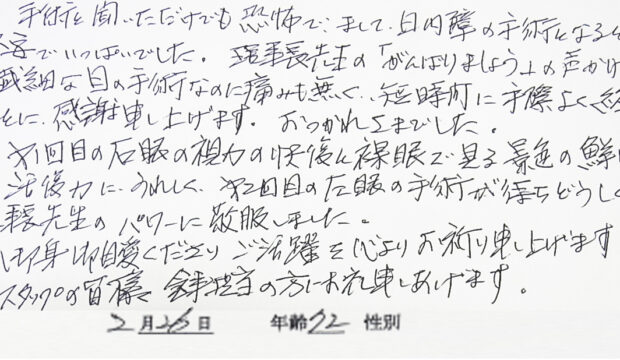 手術と聞いただけでも恐怖でしたが、白内障の手術となると
でいっぱいでした。理事長先生の「がんばりましょう」の声かけ
繊細な目の手術なのに痛みも無く、短時間に手際よく
に、感謝申し上げます。おつかれさまでした。
第1回目の右眼の視力の快復に裸眼で見る景色の鮮
活復力に、うれしく、第2回目の左眼の手術が待ちどうしく
事長先生のパワーに敬服しました。
御身御自愛くださり ご活躍を心よりお祈り申し上げます
スタッフの皆様、食事担当の方にお礼申しあげます。
2月26日 年齢72 性別